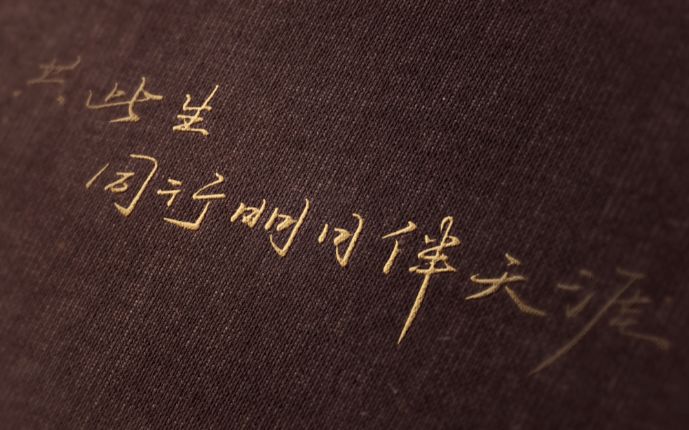 共此生
同行明月伴天涯